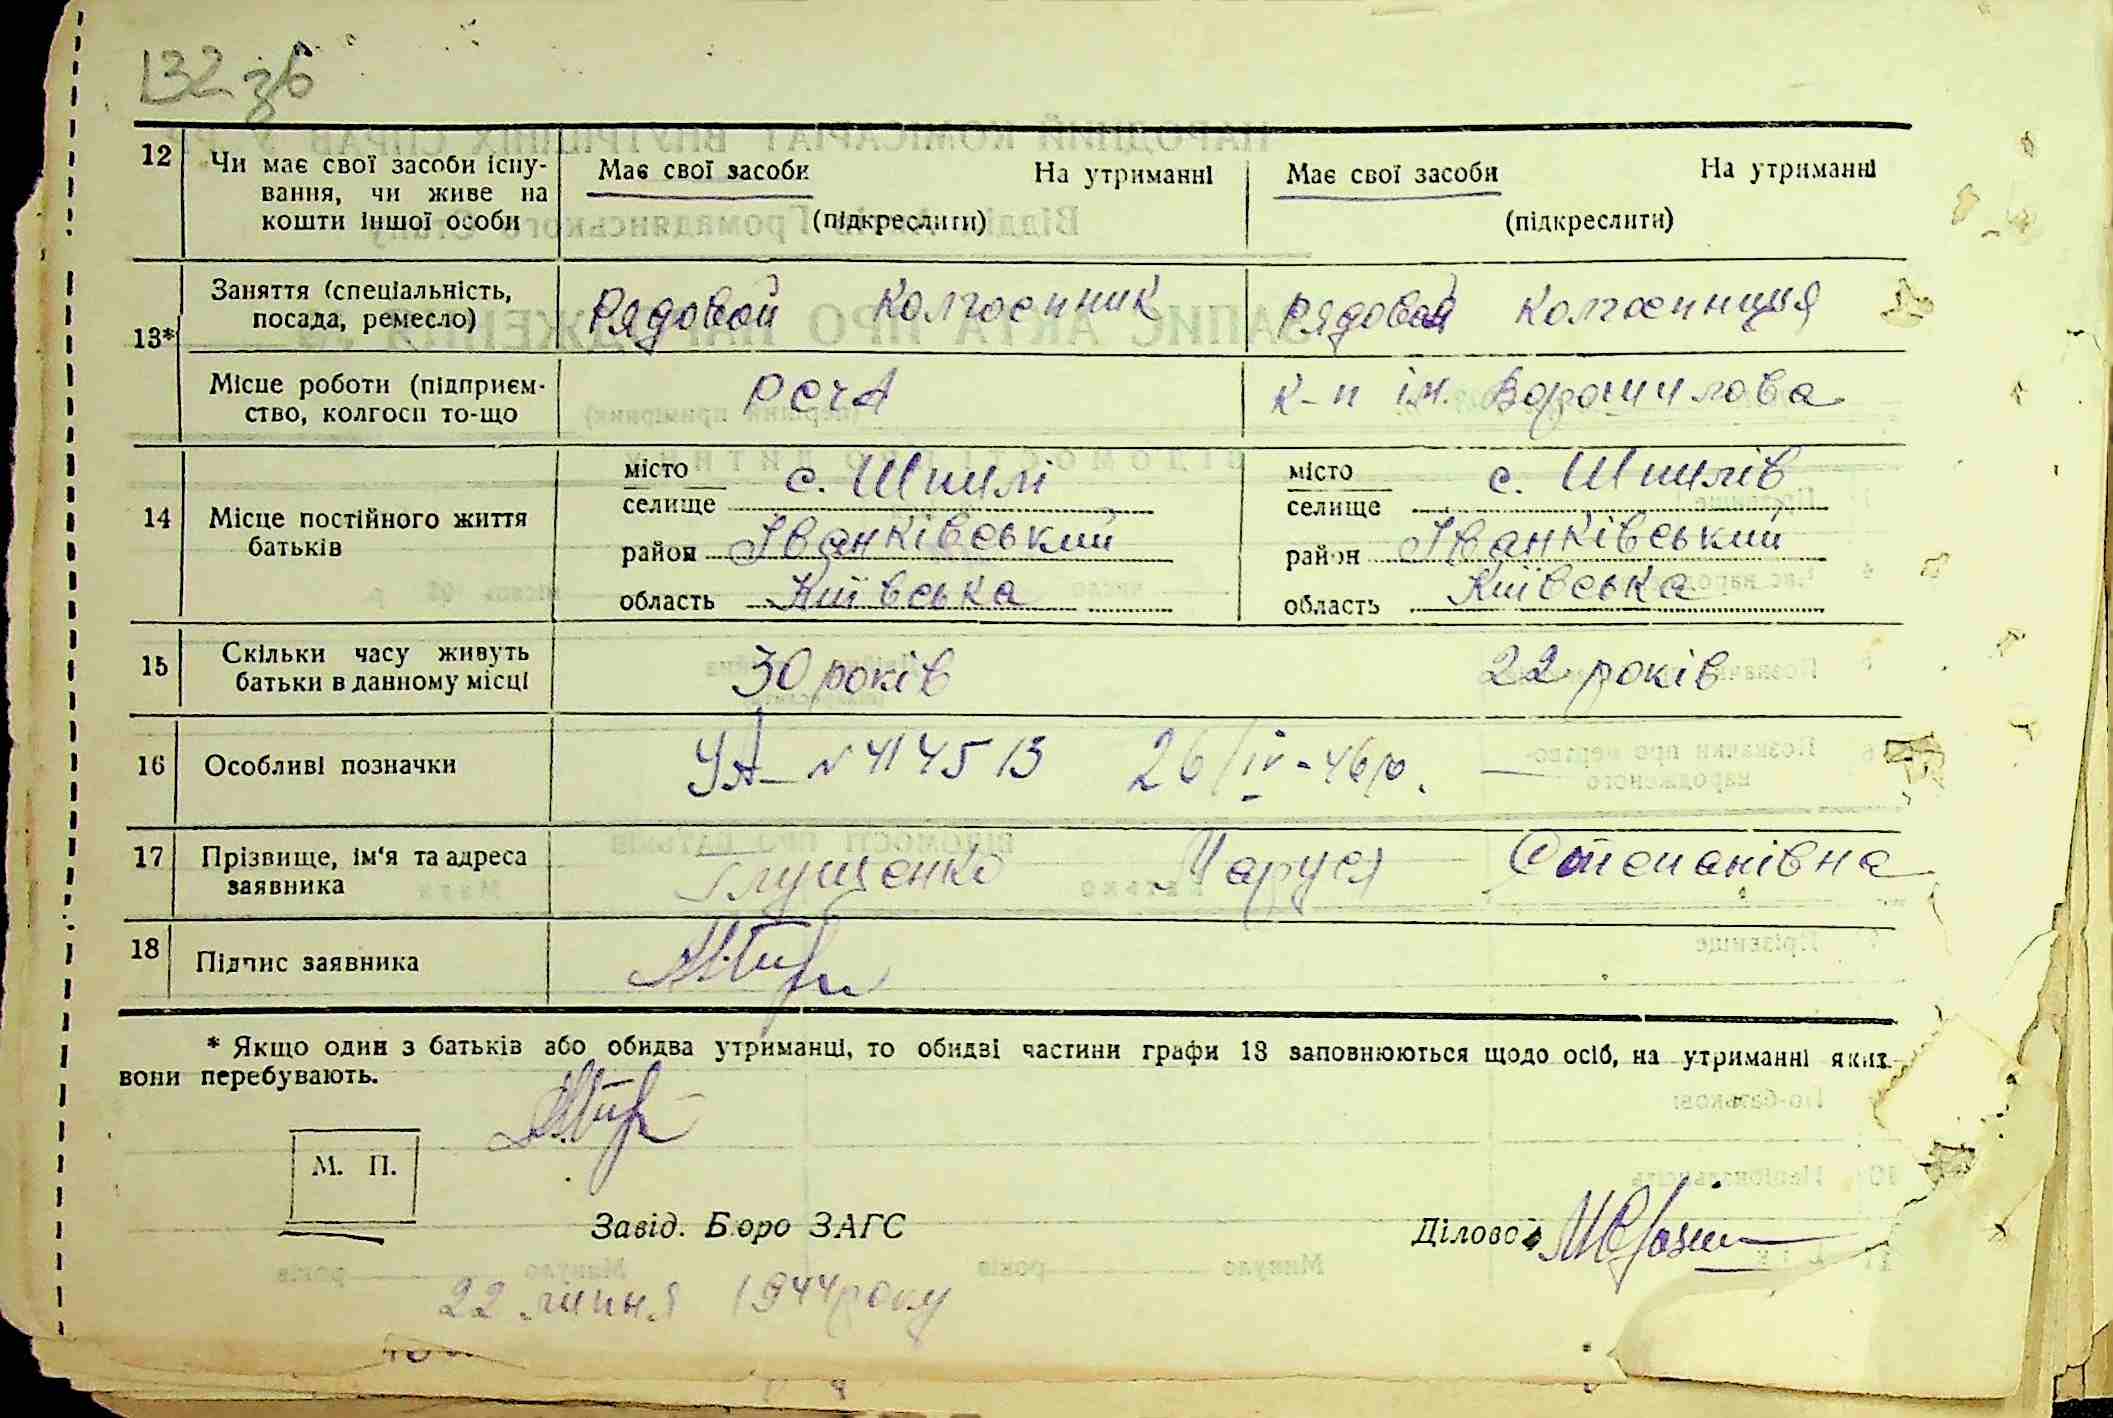 132 зв
12 Чи має свої засоби існу- Має свої засоби На утриманні Має свої засоби На утриманні
вання, чи живе на
кошти іншої особи (підкреслити) (підкреслити)
13* Заняття (спеціальність, Рядовой колгоспник Рядовая колгоспниця
посада, ремесло)
Місце роботи (підприєм- РСЧА К-п ім. Ворошилова
ство, колгосп то-що
14 Місце постійного життя місто с. Шпилі місто с. Шпилів
батьків селище селище
район Іванківський район Іванківський
область Київська область Київська
15 Скільки часу живуть 30 років 22 років
батьки в данному місці
16 Особливі позначки УА № 414513 26/IV-46р. —
17 Прізвище, ім'я та адреса Глущенко Маруся Степанівна
заявника
18 Підпис заявника
* Якщо один з батьків або обидва утриманці, то обидві частини графи 13 заповнюються щодо осіб, на утриманні яких
вони перебувають.
М. П.
Завід. Бюро ЗАГС Діловод
22 липня 1944 року